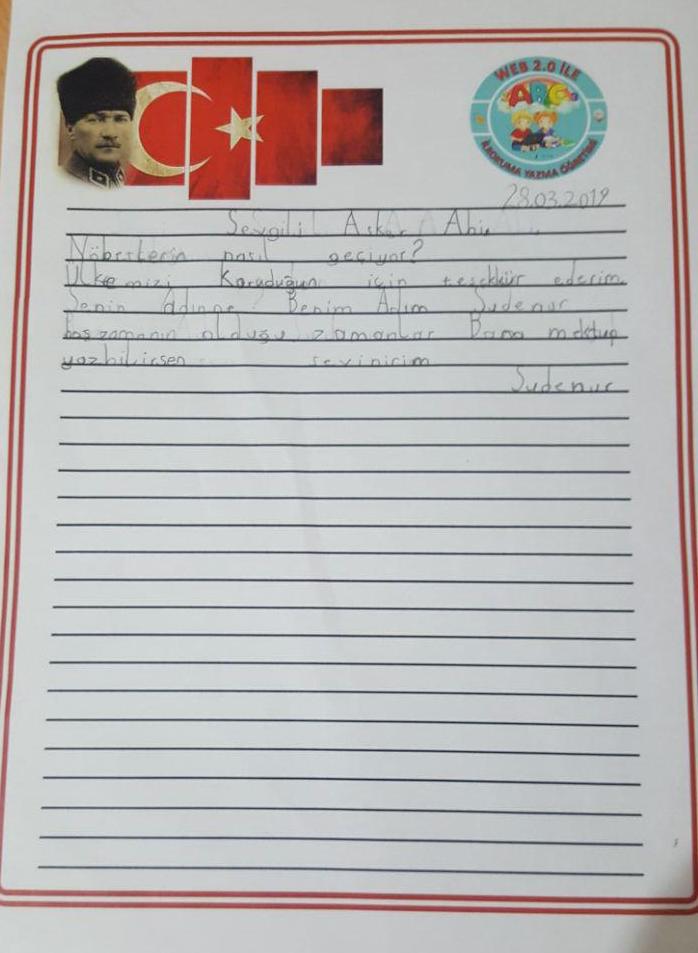 WEB 2.0 İLE
ABC
İLKOKUMA YAZMA ÖĞRETİMİ
28.03.2019
Sevgili Asker Abi,
Nöbetlerin nasıl geçiyor?
Ülkemizi Koruduğun için teşekkür ederim.
Senin Adınne Benim Adım Sudenur
boş zamanın olduğu zamanlar Bana mektup
yazbilirsen sevinirim
Sudenur